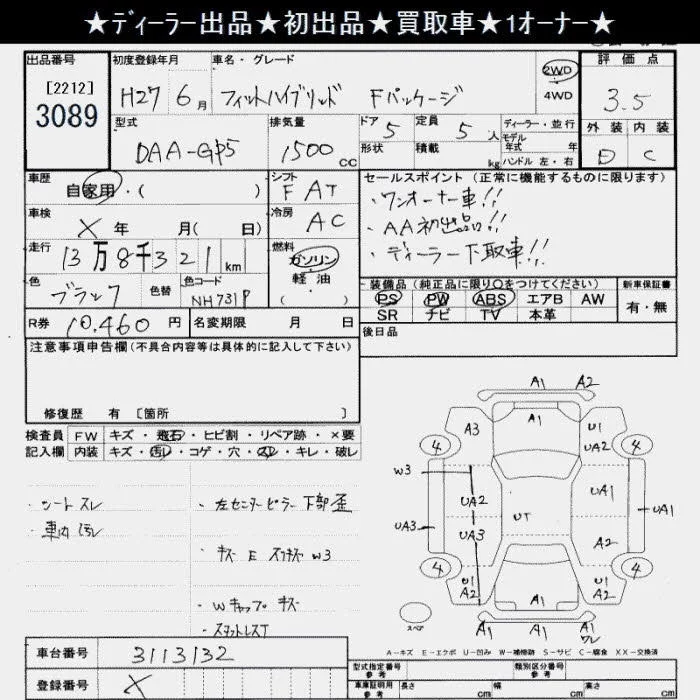 ★ディーラー出品★初出品★買取車★1オーナー★
出品番号 初度登録年月 車名・グレード 評価点
[2212]
3089
H27 6月 フィットハイブリッド Fパッケージ 2WD 4WD 3.5
型式 排気量 ドア 定員 ディーラー・並行 外装 内装
DAA-GP5 1500cc 5 5人 モデル年式 年
形状 積載 kg ハンドル 左・右 D C
車歴 シフト セールスポイント (正常に機能するものに限ります)
自家用・( ) F AT ・ワンオーナー車!!
車検 冷房 ・AA初出品!!
X 年 月( 日) AC ・ディーラー下取車!!
走行 燃料
13万8千321km ガソリン
軽油
( ・ )
色 色替 色コード 装備品 (純正品に限り○をつけてください) 新車保証書
ブラック NH731P PS PW ABS エアB AW 有・無
SR ナビ TV 本革
R券 10,460円 名変期限 月 日 後日品
注意事項申告欄(不具合内容等は具体的に記入して下さい)
修復歴 有 [箇所 ]
検査員 FW キズ・飛石・ヒビ割・リペア跡・×要
記入欄 内装 キズ・汚レ・コゲ・穴・スレ・キレ・破レ
・シートスレ
・車内汚レ
・左センターピラー下部歪
・キズ E スリキズ W3
・Wキャップ キズ
・スタットレスT
A1 A2
A3 A1 U1
4 UA2 4
W3 UA2 UA1
UA3 UA3 UT UA1
A2
4 U1 U1 4
A2 A1 A2
スペア A1 A1 A1
ワレ
A-キズ E-エクボ U-凹み W-補修跡 S-サビ C-腐食 XX-交換済
車台番号 3113132
登録番号 X
型式指定番号 参考 類別区分番号 参考
車庫証明用 参考 長さ cm 幅 cm 高さ cm